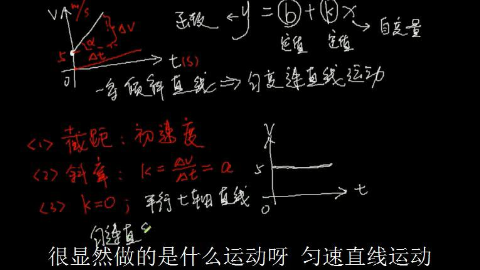 V m/s
5
α
Δt
ΔV
0
t(s)
函数 ← y = b + k x → 自变量
定值 定值
一条倾斜直线 ⇒ 匀变速直线运动
<1> 截距：初速度
<2> 斜率：k = ΔV/Δt = a
<3> k=0；平行t轴直线
匀速直
V
5
0
t
很显然做的是什么运动呀 匀速直线运动